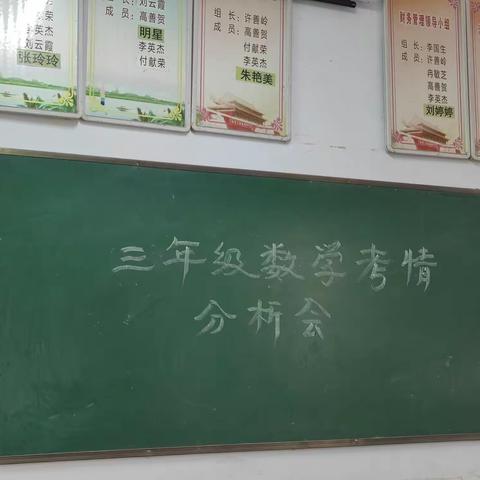 荣
英杰
刘云霞
张玲玲
刘云霞
成员：高善贺
明星
李英杰
付献荣
组长：许善岭
成员：高善贺
付献荣
李英杰
朱艳美
财务管理领导小组
组长：李国生
成员：许善岭
冉敏芝
高善贺
李英杰
刘婷婷
三年级数学考情
分析会